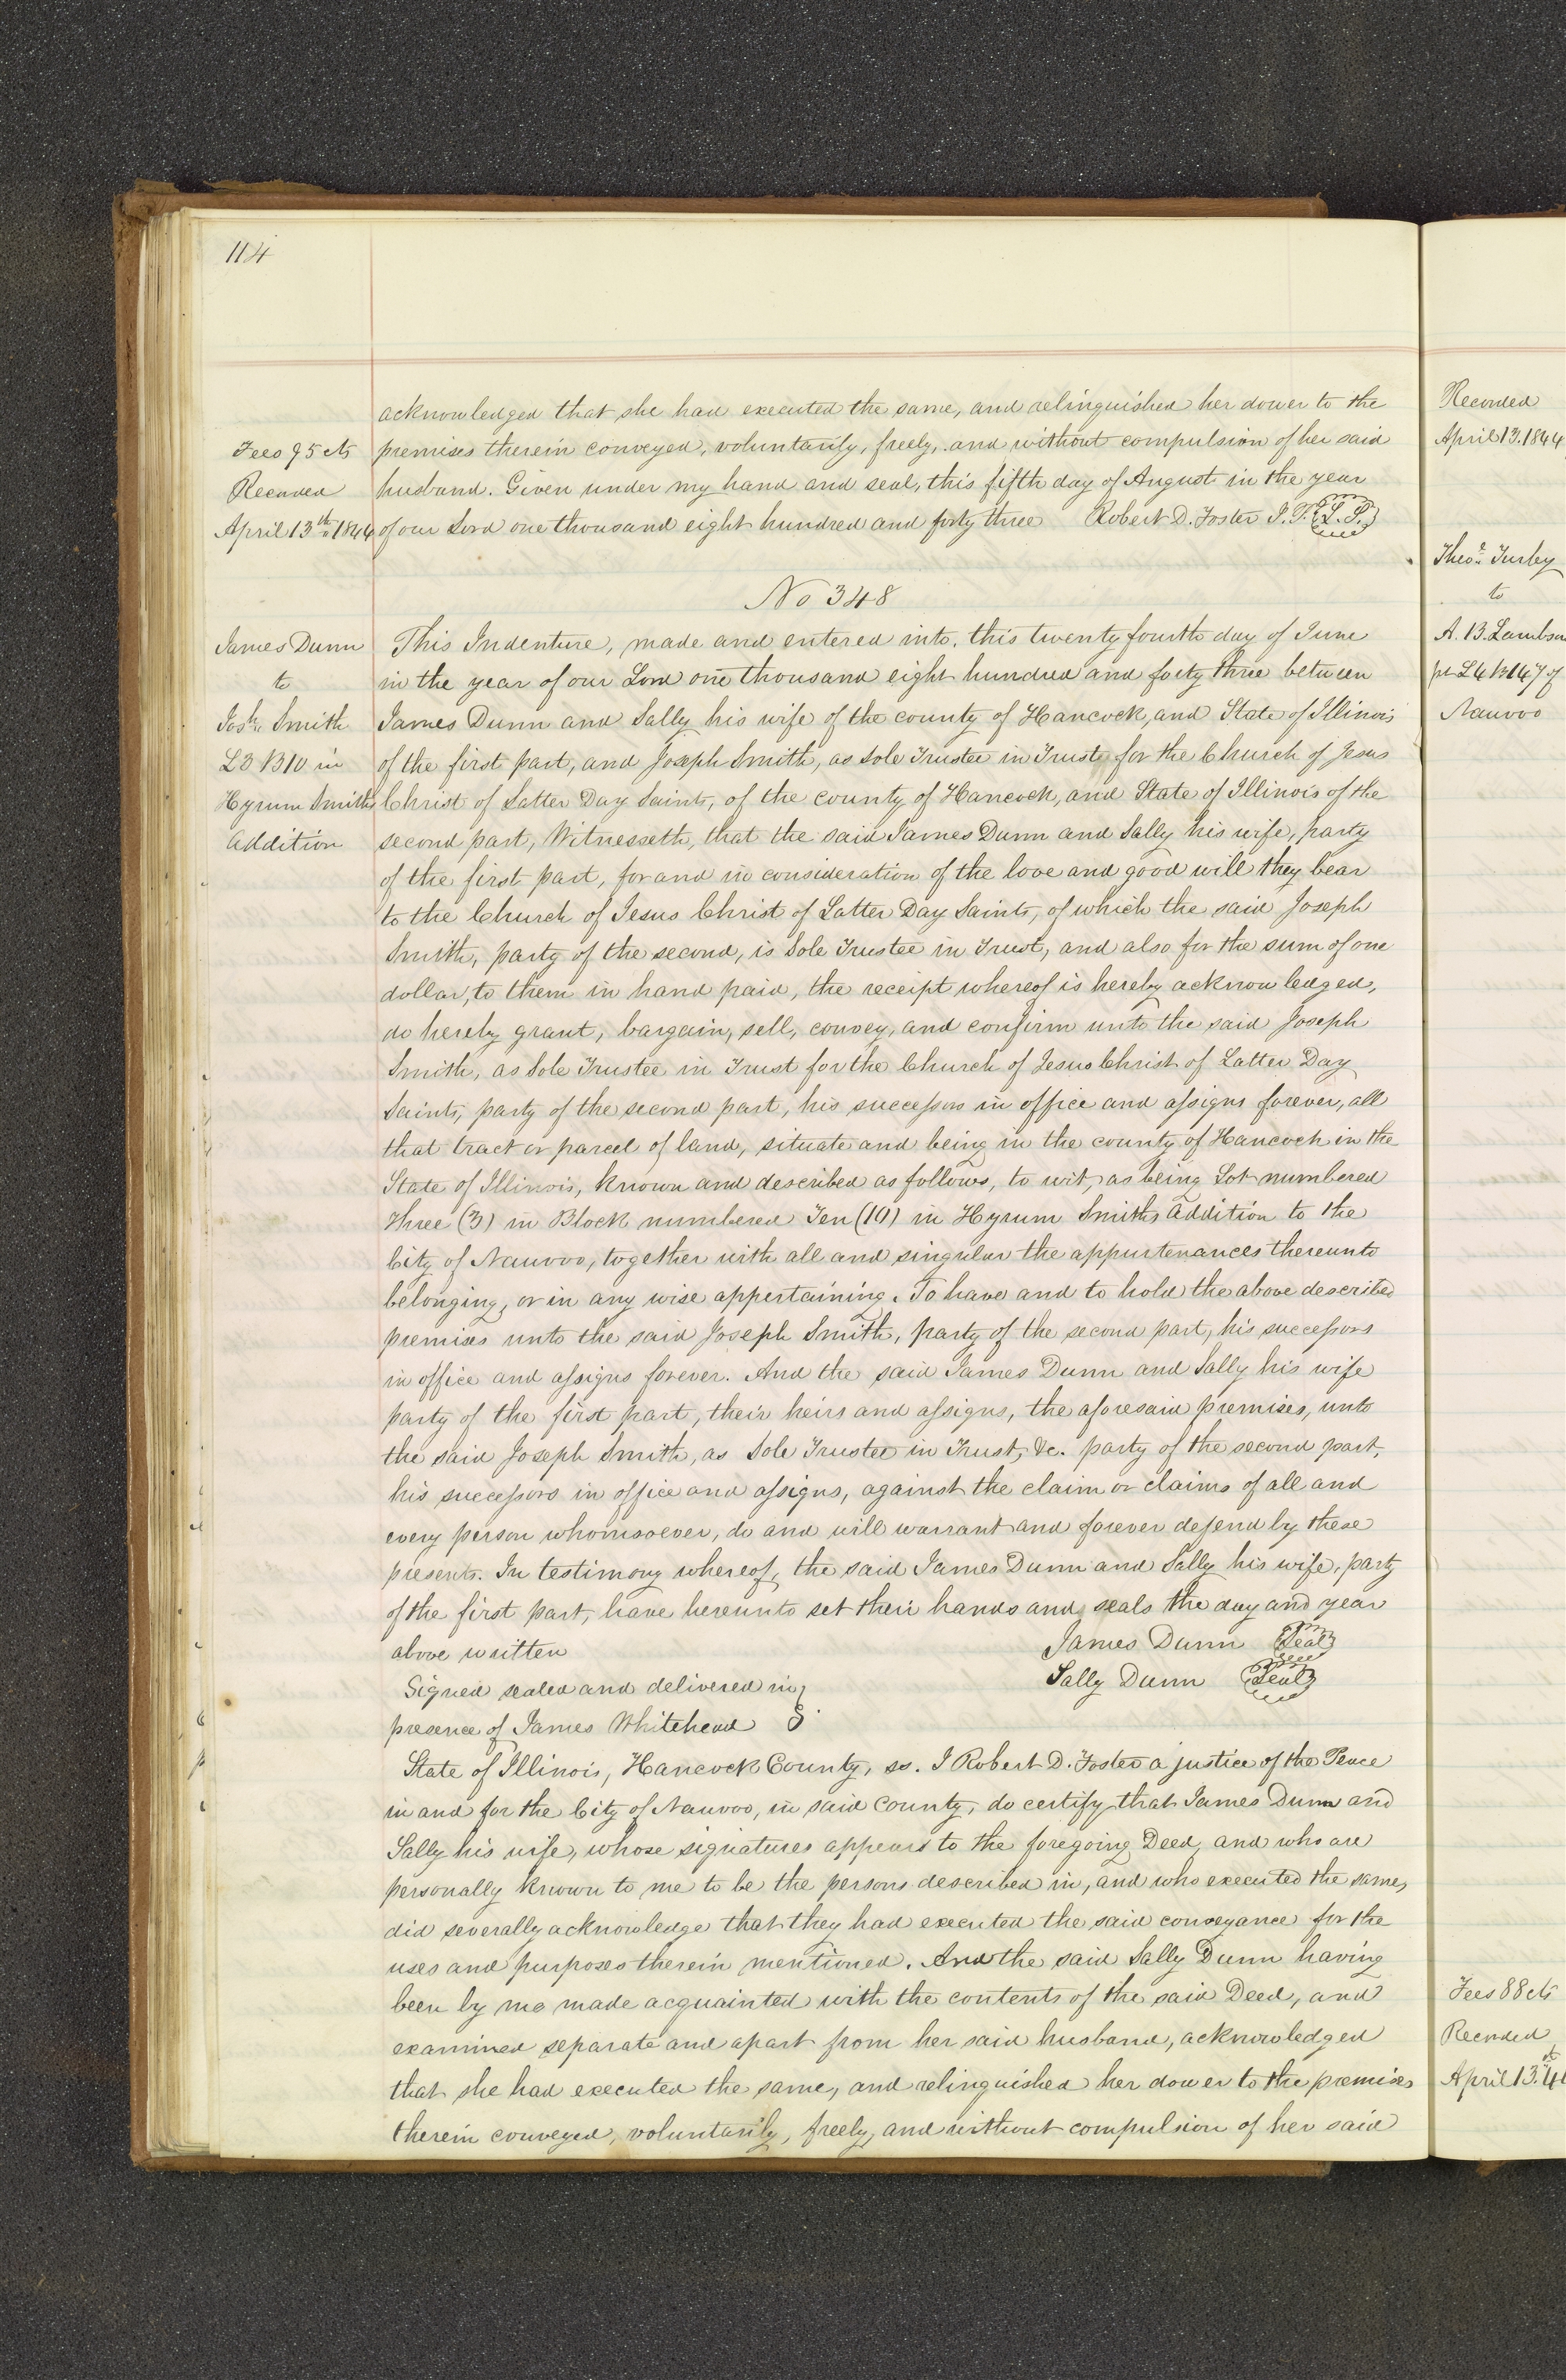 114
acknowledged that she had executed the same, and relinquished her dower to the
Fees 95 cts
premises therein conveyed, voluntarily, freely, and without compulsion of her said
Recorded
husband. Given under my hand and seal, this fifth day of August in the year
April 13th 1844
of our Lord one thousand eight hundred and forty three Robert D. Foster J. P. L. S.
No 348
James Dunn
to
Josh. Smith
L3 B10 in
Hyrum Smiths
Addition
This Indenture, made and entered into, this twenty fourth day of June
in the year of our Lord one thousand eight hundred and forty three between
James Dunn and Sally his wife of the county of Hancock, and State of Illinois
of the first part, and Joseph Smith, as sole Trustee in Trust for the Church of Jesus
Christ of Latter Day Saints, of the county of Hancock, and State of Illinois of the
second part, Witnesseth, that the said James Dunn and Sally his wife, party
of the first part, for and in consideration of the love and good will they bear
to the Church of Jesus Christ of Latter Day Saints, of which the said Joseph
Smith, party of the second, is Sole Trustee in Trust, and also for the sum of one
dollar, to them in hand paid, the receipt whereof is hereby acknowledged,
do hereby grant, bargain, sell, convey, and confirm unto the said Joseph
Smith, as Sole Trustee in Trust for the Church of Jesus Christ of Latter Day
Saints, party of the second part, his successors in office and assigns forever, all
that tract or parcel of land, situate and being in the county of Hancock in the
State of Illinois, known and described as follows, to wit, as being Lot numbered
Three (3) in Block numbered Ten (10) in Hyrum Smiths addition to the
City of Nauvoo, together with all and singular the appurtenances thereunto
belonging, or in any wise appertaining. To have and to hold the above described
premises unto the said Joseph Smith, party of the second part, his successors
in office and assigns forever. And the said James Dunn and Sally his wife
party of the first part, their heirs and assigns, the aforesaid premises, unto
the said Joseph Smith, as Sole Trustee in Trust, &c. party of the second part,
his successors in office and assigns, against the claim or claims of all and
every person whomsoever, do and will warrant and forever defend by these
presents. In testimony whereof, the said James Dunn and Sally his wife, party
of the first part, have hereunto set their hands and seals the day and year
above written James Dunn Seal
Signed sealed and delivered in Sally Dunn Seal
presence of James Whitehead
State of Illinois, Hancock County, ss. I Robert D. Foster a justice of the Peace
in and for the City of Nauvoo, in said County, do certify that James Dunn and
Sally his wife, whose signatures appears to the foregoing Deed, and who are
personally known to me to be the persons described in, and who executed the same,
did severally acknowledge that they had executed the said conveyance for the
uses and purposes therein mentioned. And the said Sally Dunn having
been by me made acquainted with the contents of the said Deed, and
examined separate and apart from her said husband, acknowledged
that she had executed the same, and relinquished her dower to the premises
therein conveyed, voluntarily, freely, and without compulsion of her said
Recorded
April 13. 1844
Theo. Turley
to
A. B. Lambson
pt L4 B147 of
Nauvoo
Fees 88 cts
Recorded
April 13th